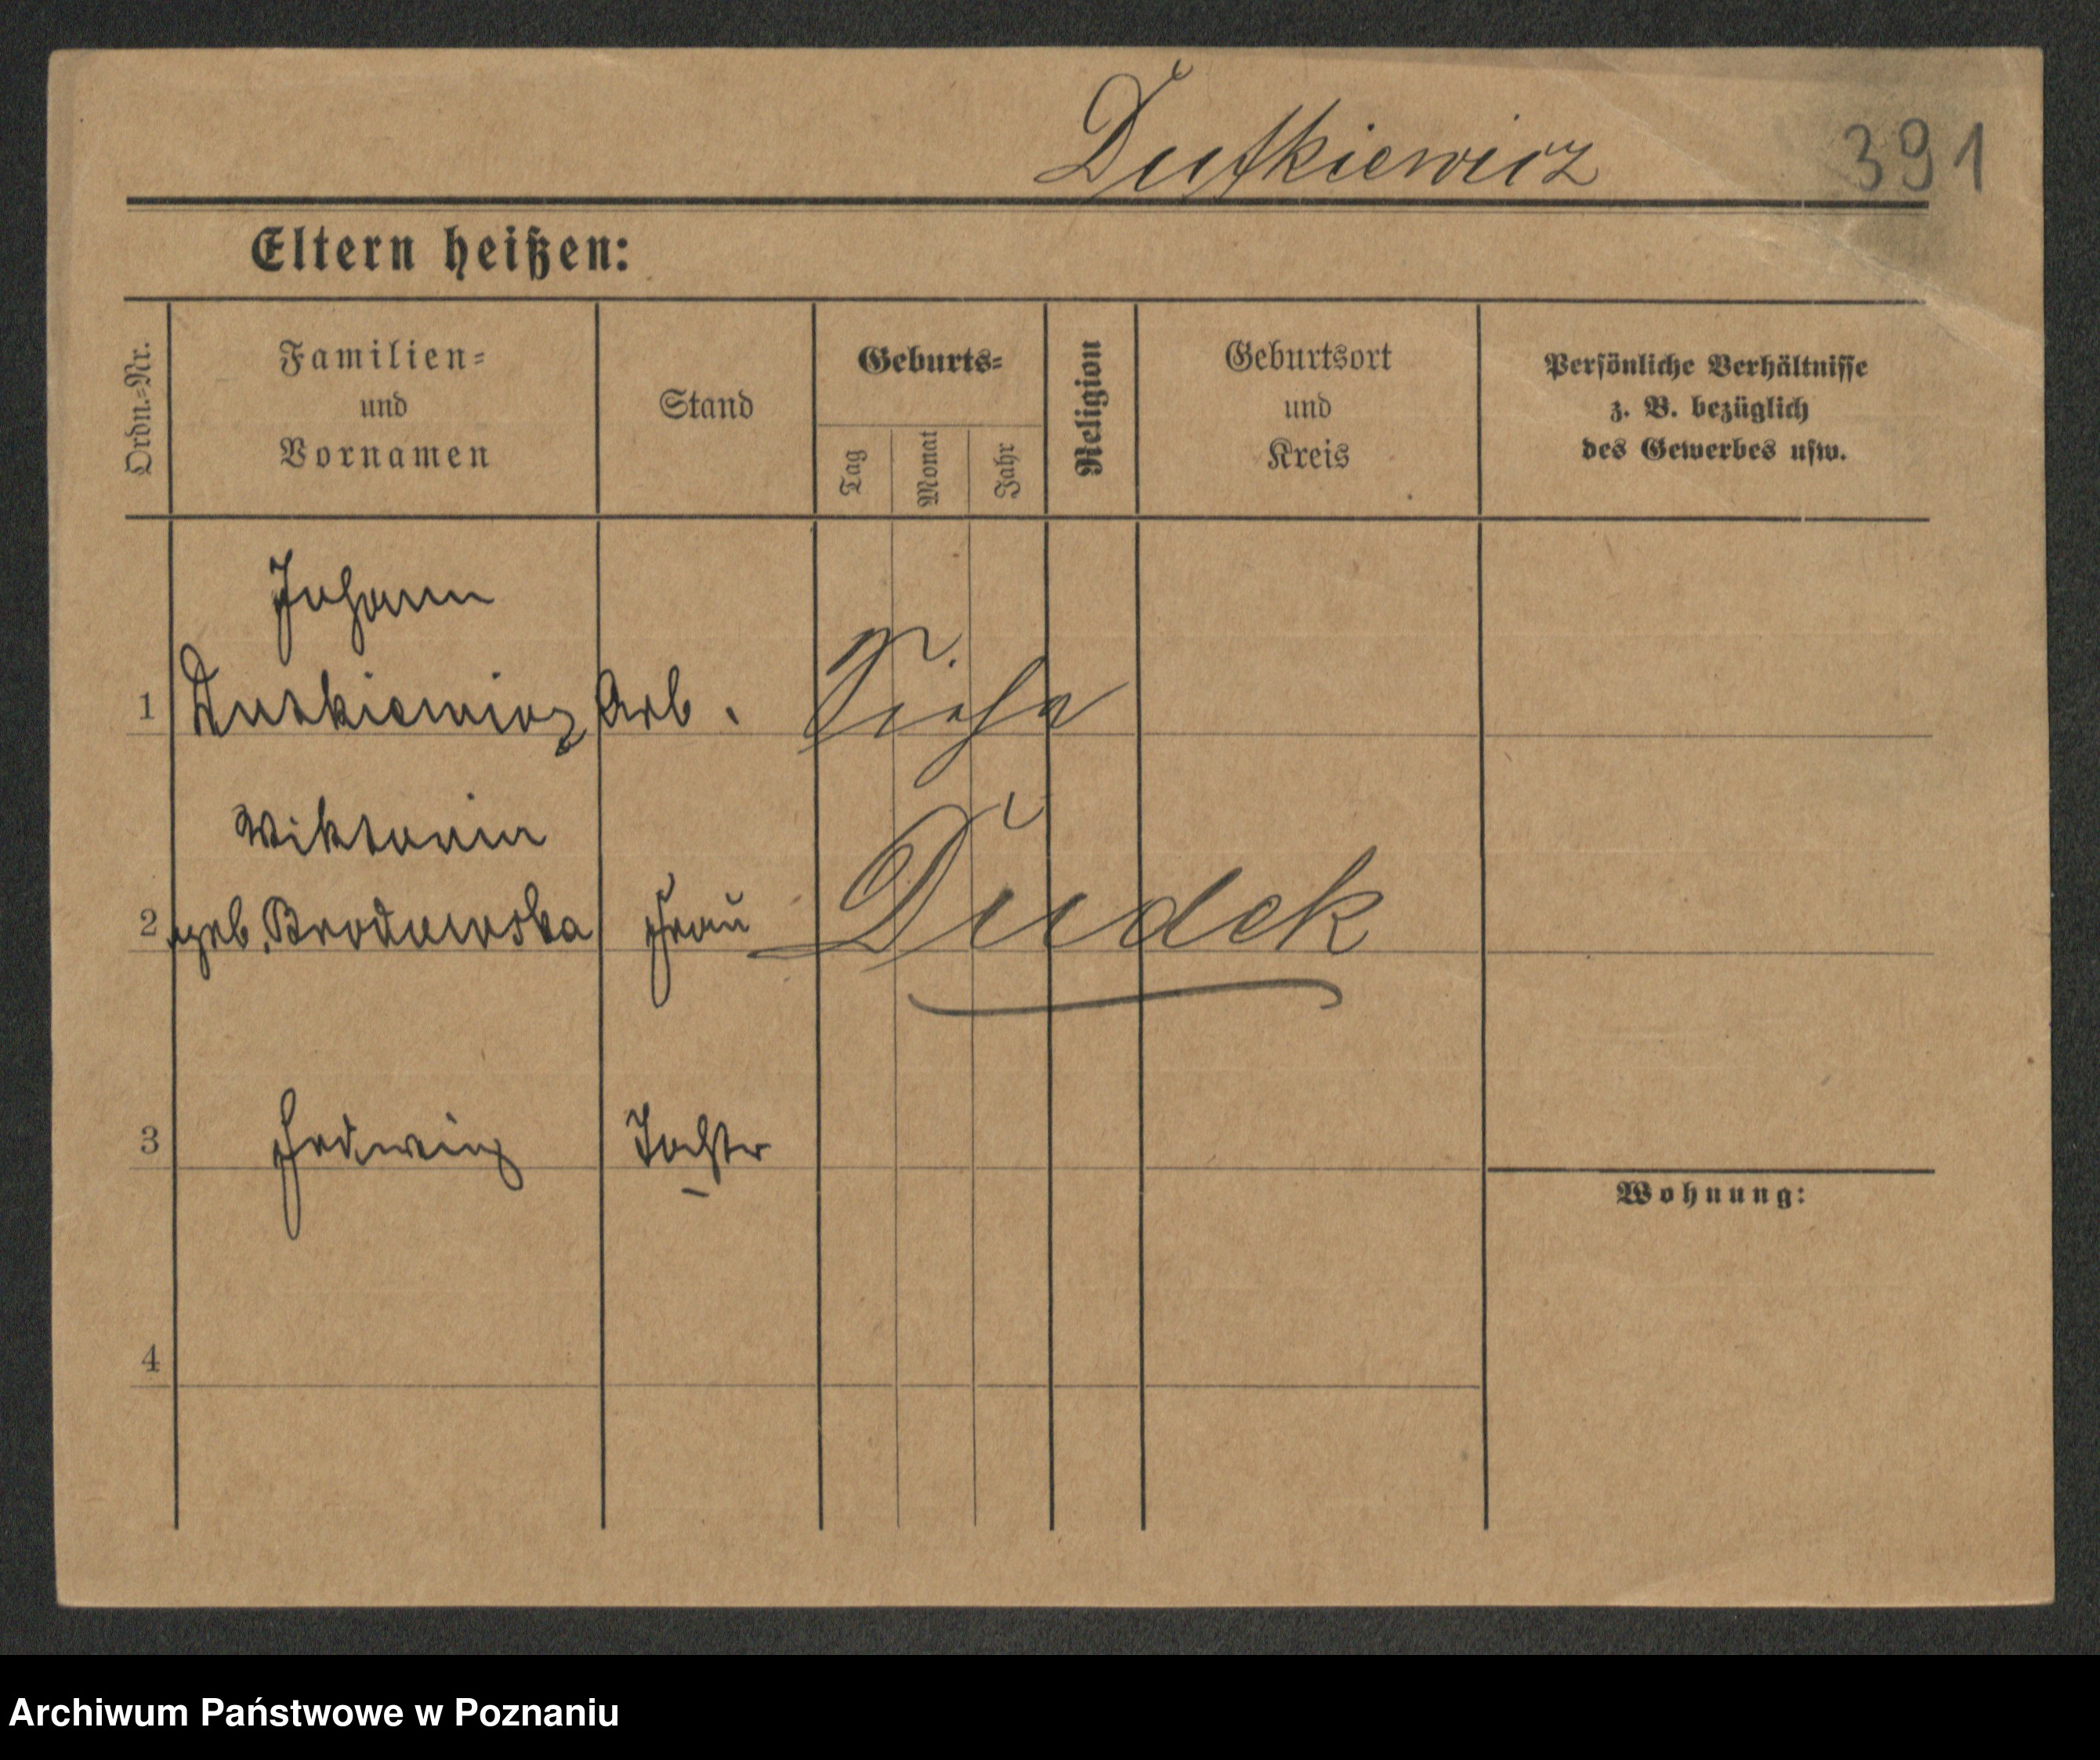 Dutkiewicz 391
Eltern heißen:
Ordn.-Nr.
Familien-
und
Vornamen
Stand
Geburts-
Tag
Monat
Jahr
Religion
Geburtsort
und
Kreis
Persönliche Verhältnisse
z. B. bezüglich
des Gewerbes usw.
Johann
1 Dutkiewicz Arb. Siehe
Wiktoria
2 geb. Brodowska Frau Dudek
3 Hedwig Tochter
Wohnung:
4
Archiwum Państwowe w Poznaniu